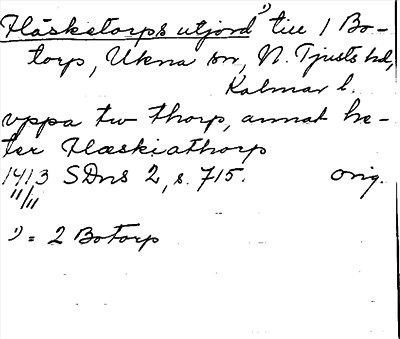 Fläsketorps utjord ¹⁾ till 1 Bo-
torp, Ukna sn, N. Tjusts hd,
Kalmar l.
vppa tw thorp, annat he-
ter Flæskiathorp
1413 SDns 2, s. 715. orig.
11/11
¹⁾ = 2 Botorp